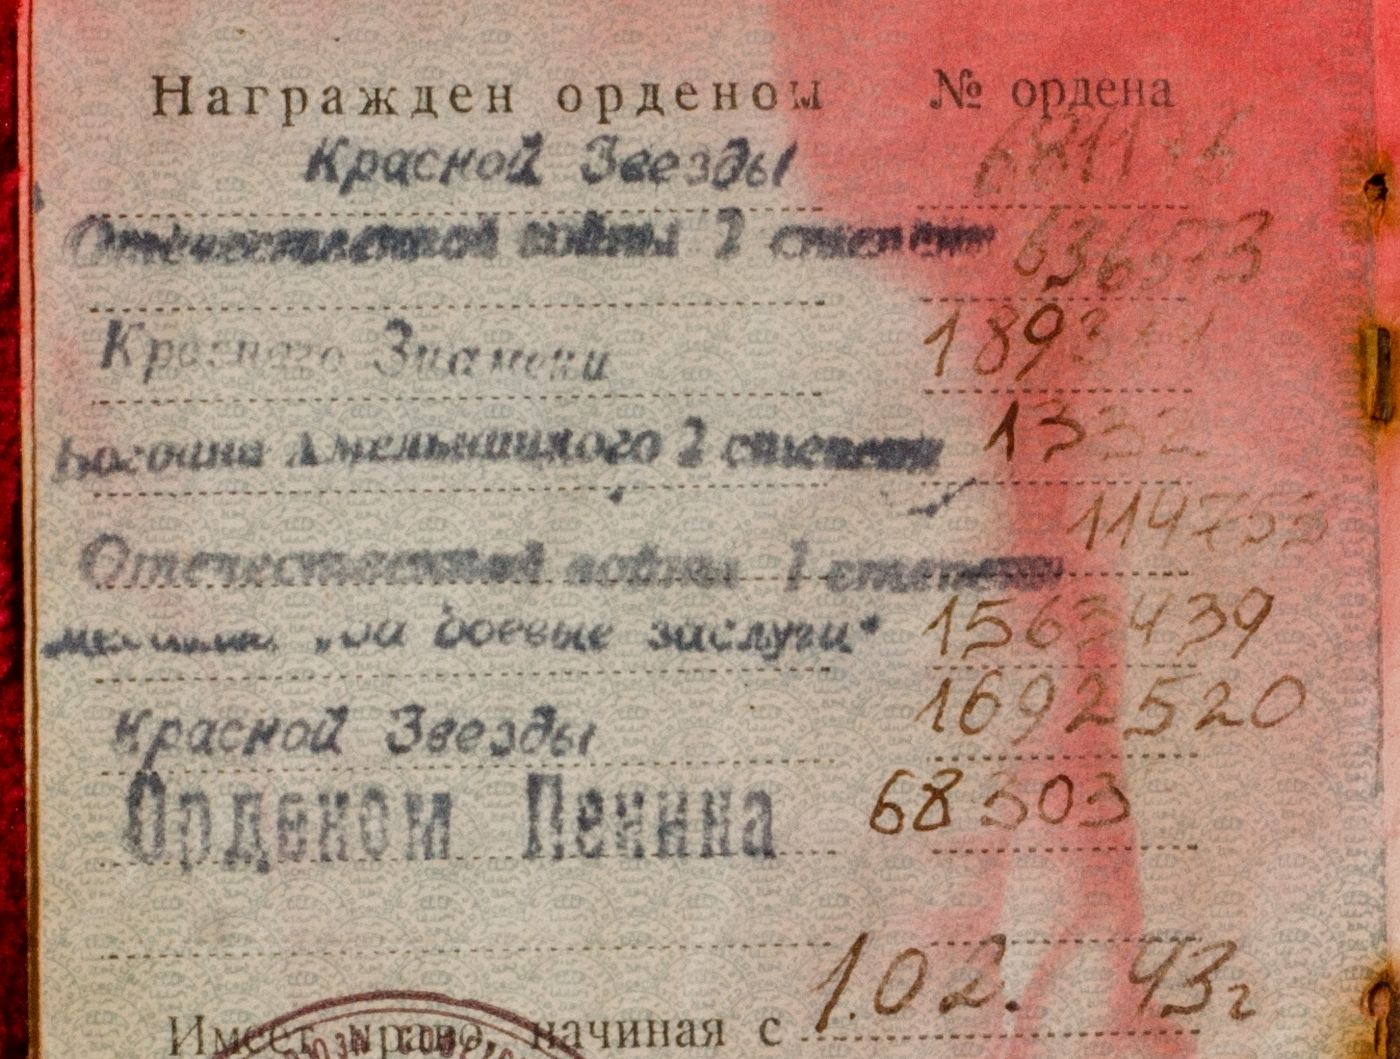 Награжден орденом № ордена
Красной Звезды
Отечественной войны 2 степени 636573
Красного Знамени
Богдана Хмельницкого 2 степени 1332
Отечественной войны 1 степени 114753
медалью „За боевые заслуги“ 1563439
Красной Звезды 1692520
Орденом Ленина 68303
Имеет право, начиная с 1.02. 43г